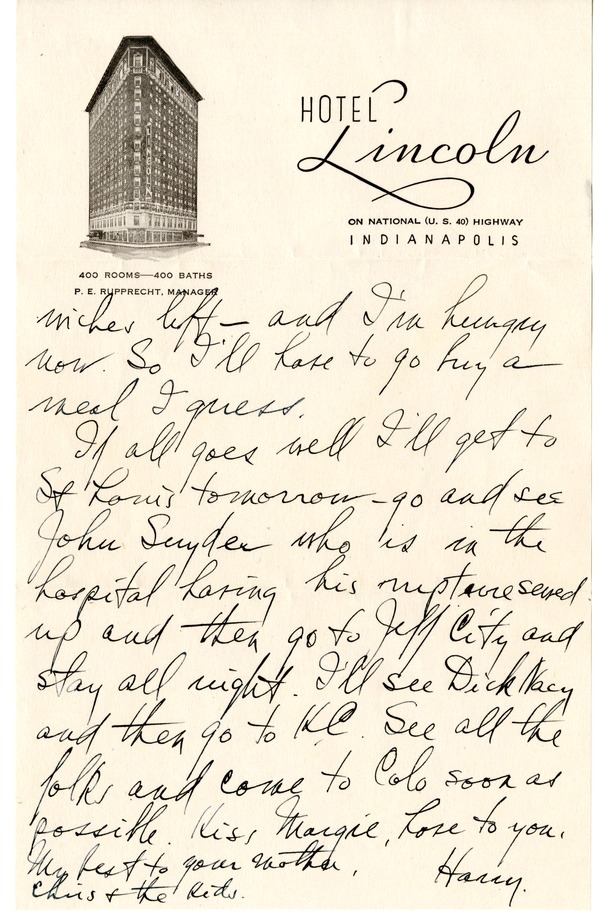 HOTEL
Lincoln
ON NATIONAL (U. S. 40) HIGHWAY
INDIANAPOLIS
400 ROOMS—400 BATHS
P. E. RUPPRECHT, MANAGER
wiches left – and I'm hungry
now. So I'll have to go buy a
meal I guess.
If all goes well I'll get to
St Louis tomorrow – go and see
John Snyder who is in the
hospital having his rupture sewed
up and then go to Jeff City and
stay all night. I'll see Dick Nacy
and then go to KC. See all the
folks and come to Colo soon as
possible. Kiss Margie, love to you.
My best to your mother,
Chris & the kids.
Harry.